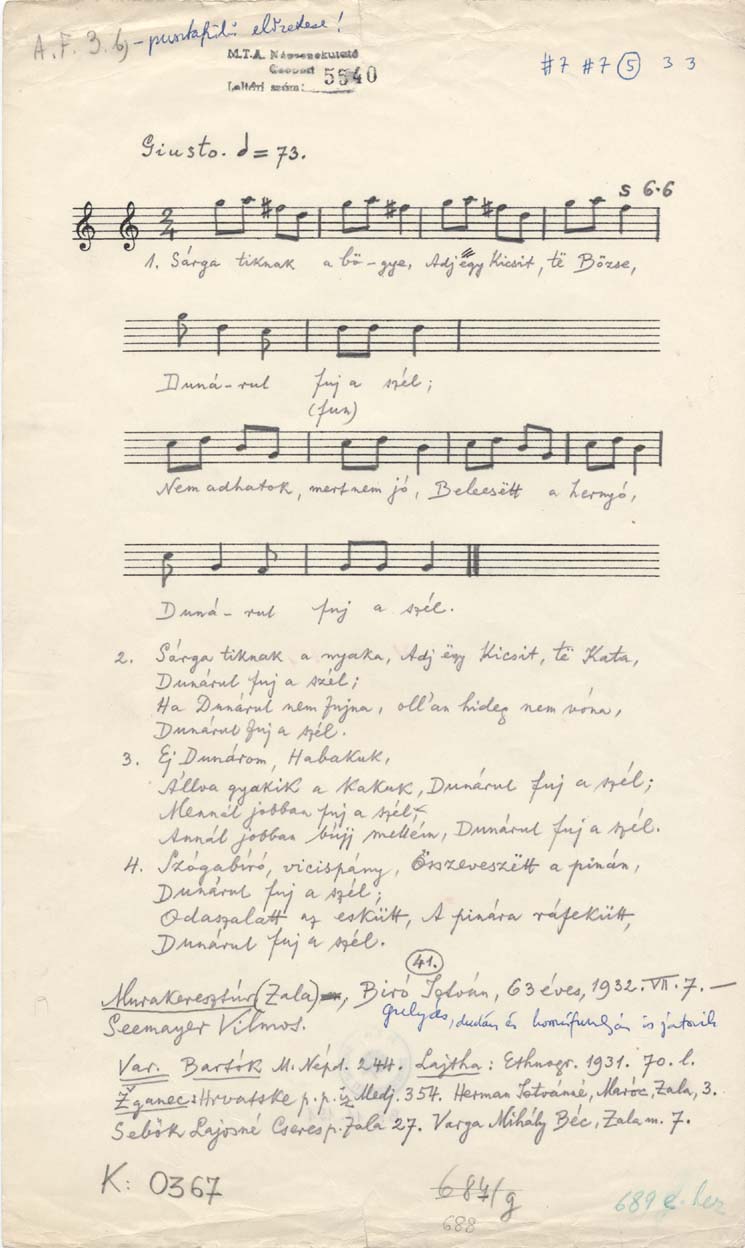 A.F. 3. b) - pusztafödi előzetese!
M.T.A. Népzenekutató
Csoport 5540
Leltári szám:
#7 #7 5 3 3
Giusto. = 73.
s 6·6
2 4
1. Sárga tiknak a bö-gye, Adj ëgy kicsit, të Bözse,
Duná-rul fuj a szél;
(fun)
Nem adhatok, mert nem jó, Beleesëtt a hernyó,
Duná-rul fuj a szél.
2. Sárga tiknak a nyaka, Adj ëgy kicsit, të Kata,
Dunárul fuj a szél;
Ha Dunárul nem fujna, oll'an hideg nem vóna,
Dunárul fuj a szél.
3. Ej Dunárom, Habakuk,
Állva gyakik a kakuk, Dunárul fuj a szél;
Mennál jobban fuj a szél,
Annál jobban bújj mellém, Dunárul fuj a szél.
4. Szógabíró, vicispány, Összeveszëtt a pinán,
Dunárul fuj a szél;
Odaszalatt az eskütt, A pinára ráfekütt,
Dunárul fuj a szél.
41.
Murakeresztúr (Zala), Biró István, 63 éves, 1932. VII. 7. —
gulyás, dudán és is játszik
Seemayer Vilmos.
Var. Bartók M. Népd. 244. Lajtha: Ethnogr. 1931. 70. l.
Žganec: Hrvatske p. p. iz Medj. 354. Herman Istvánné, Maróc, Zala, 3.
Sebök Lajosné Cseresp. Zala 27. Varga Mihály Béc, Zala m. 7.
K: 0367
684/g
688
689